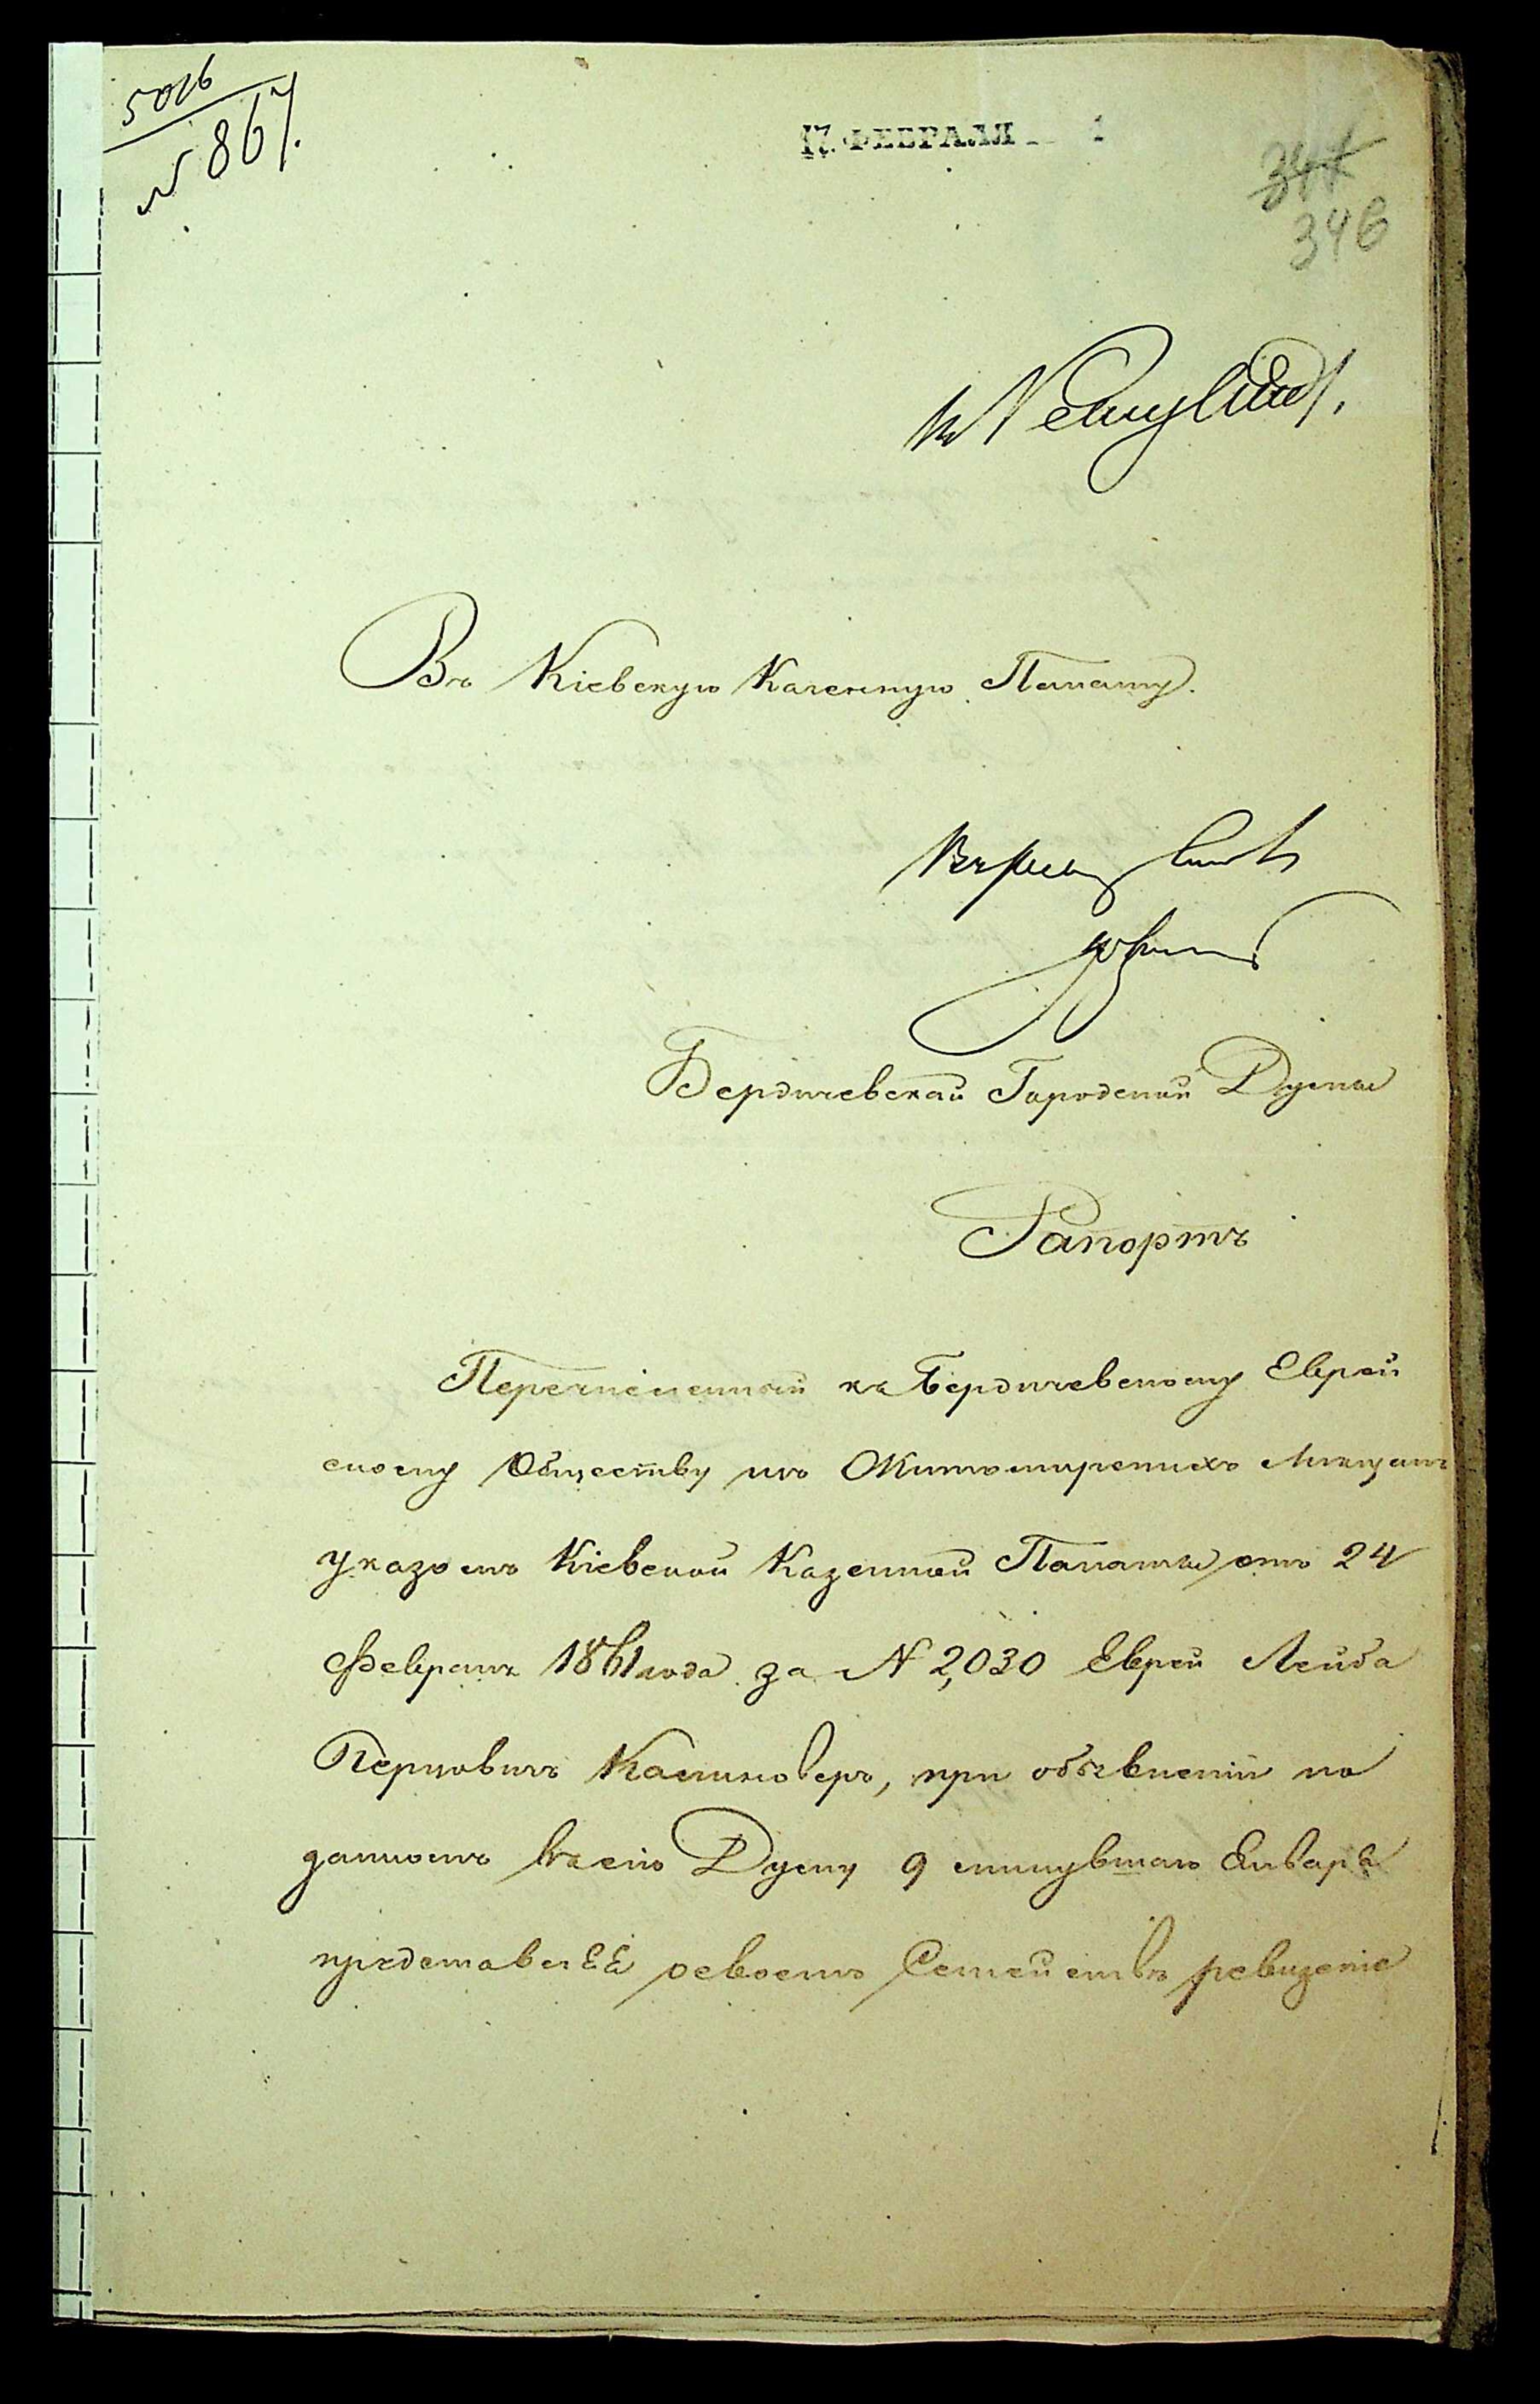 5016
№ 867.
17 ФЕВРАЛЯ
347
346
Въ Кіевскую Казенную Палату.
Бердичевской Городской Думы
Рапортъ
Перечисленный къ Бердичевскому Еврей
скому Обществу изъ Житомирскихъ Мѣщанъ
указомъ Кіевской Казенной Палаты отъ 24
Февраля 1861 года за № 2,030 Еврей Лейба
Перцовичъ, при объявленіи по
данномъ въ сію Думу 9 минувшаго Января
представилъ о своемъ Семействѣ ревизскіе